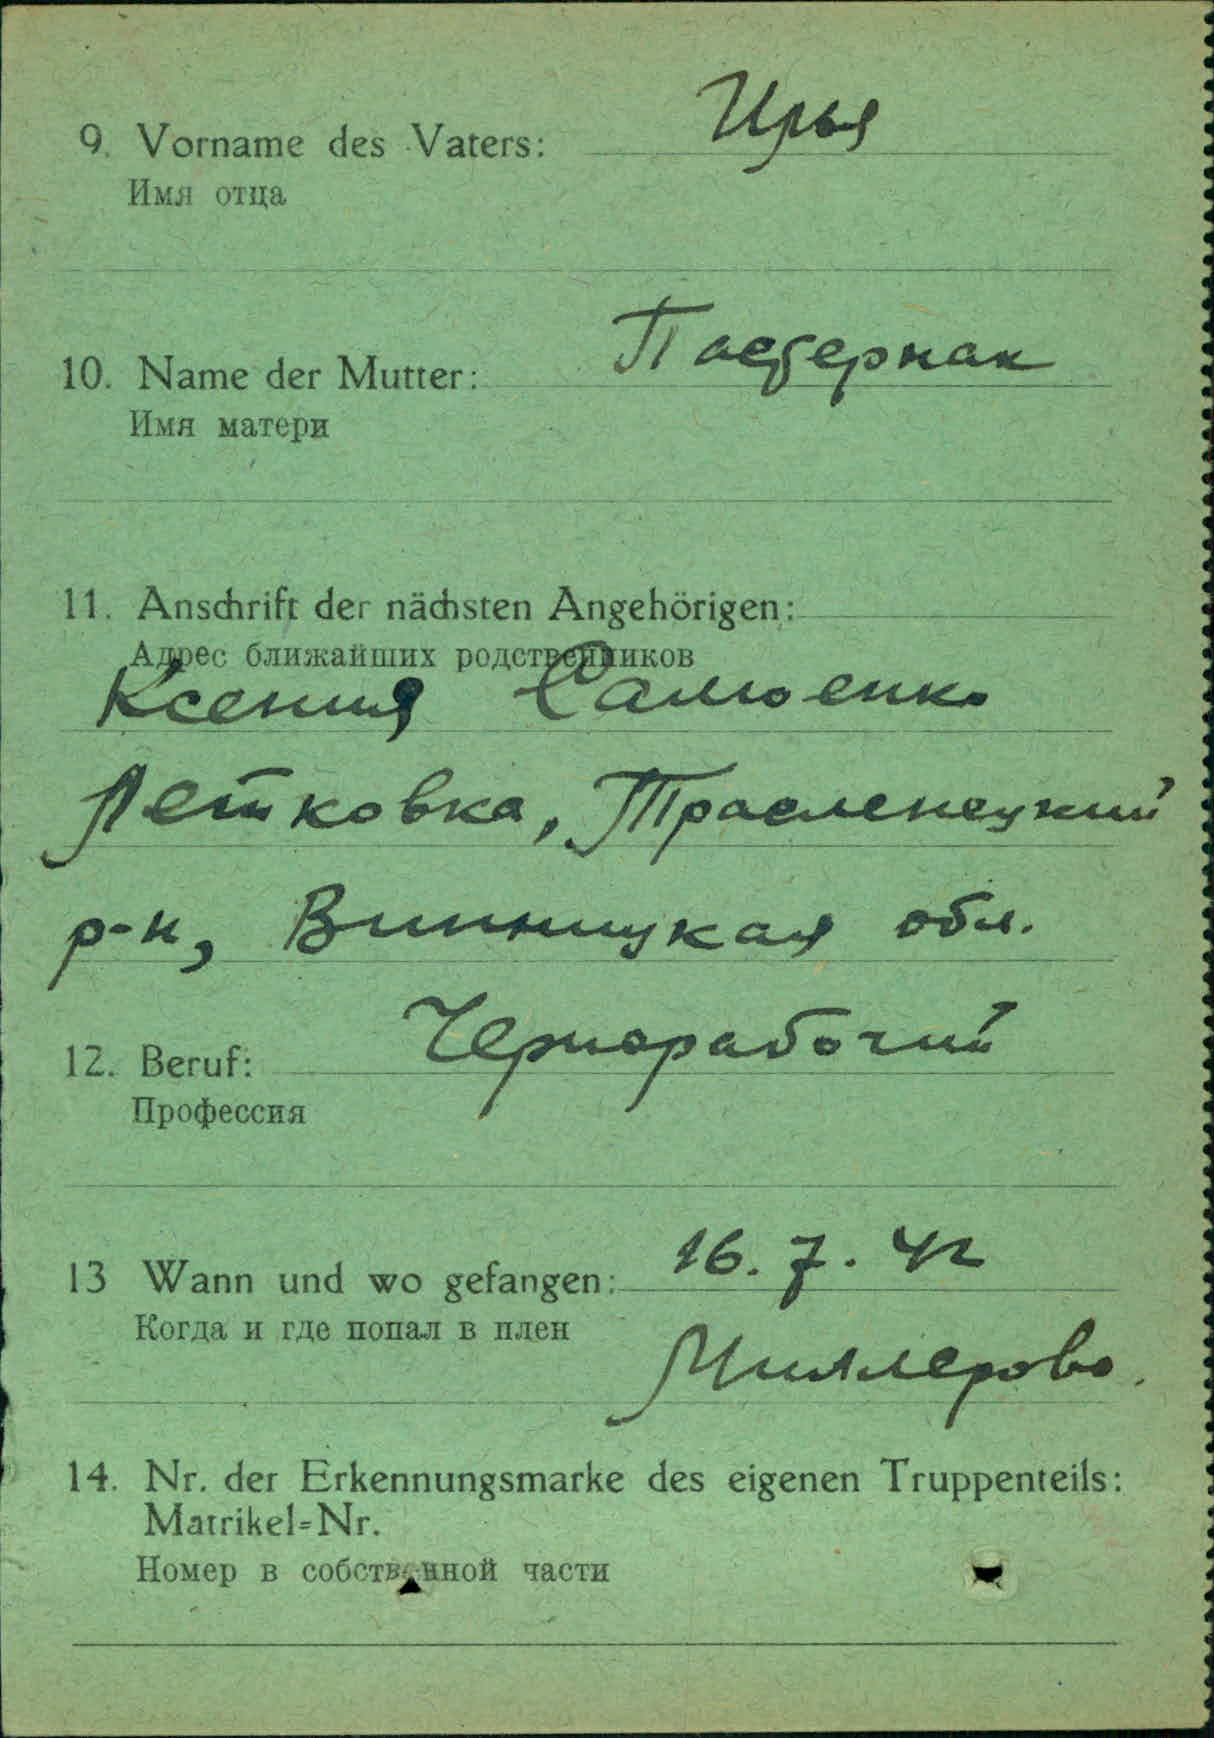 9. Vorname des Vaters: Илья
Имя отца
10. Name der Mutter: Пастернак
Имя матери
11. Anschrift der nächsten Angehörigen:
Адрес ближайших родственников
Ксения
Летковка,
р-н, Винницкая обл.
12. Beruf: Чернорабочий
Профессия
13 Wann und wo gefangen: 16. 7. 42
Когда и где попал в плен
Миллерово.
14. Nr. der Erkennungsmarke des eigenen Truppenteils:
Matrikel=Nr.
Номер в собственной части